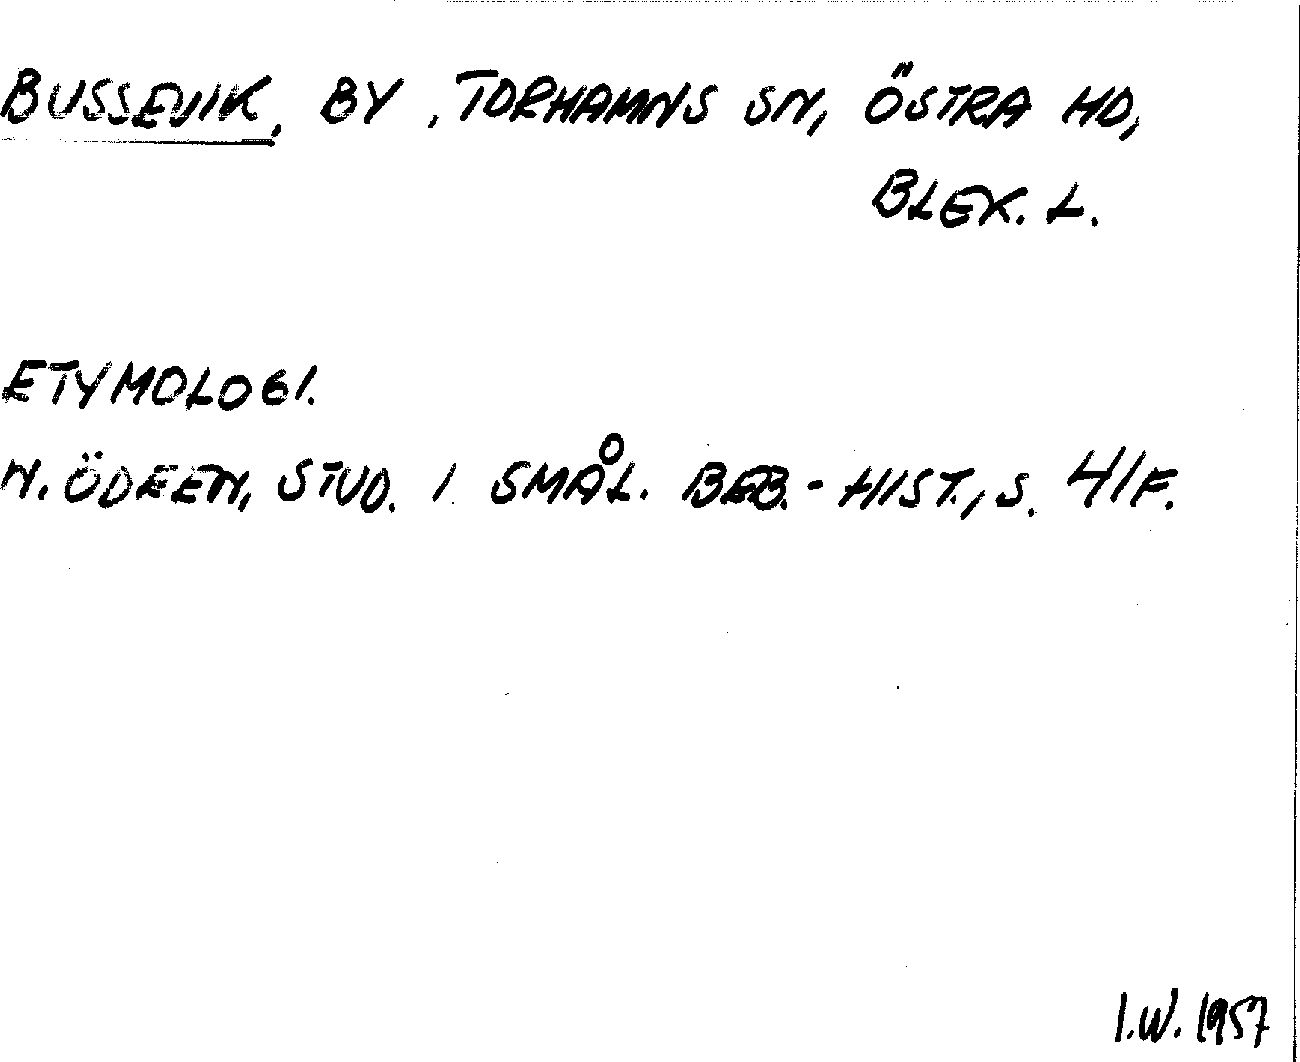 BUSSEVIK, BY, TORHAMNS SN, ÖSTRA HD,
BLEK. L.
ETYMOLOGI.
N. ÖDEEN, STUD. I SMÅL. BEB.-HIST., S. 41F.
I.W. 1957